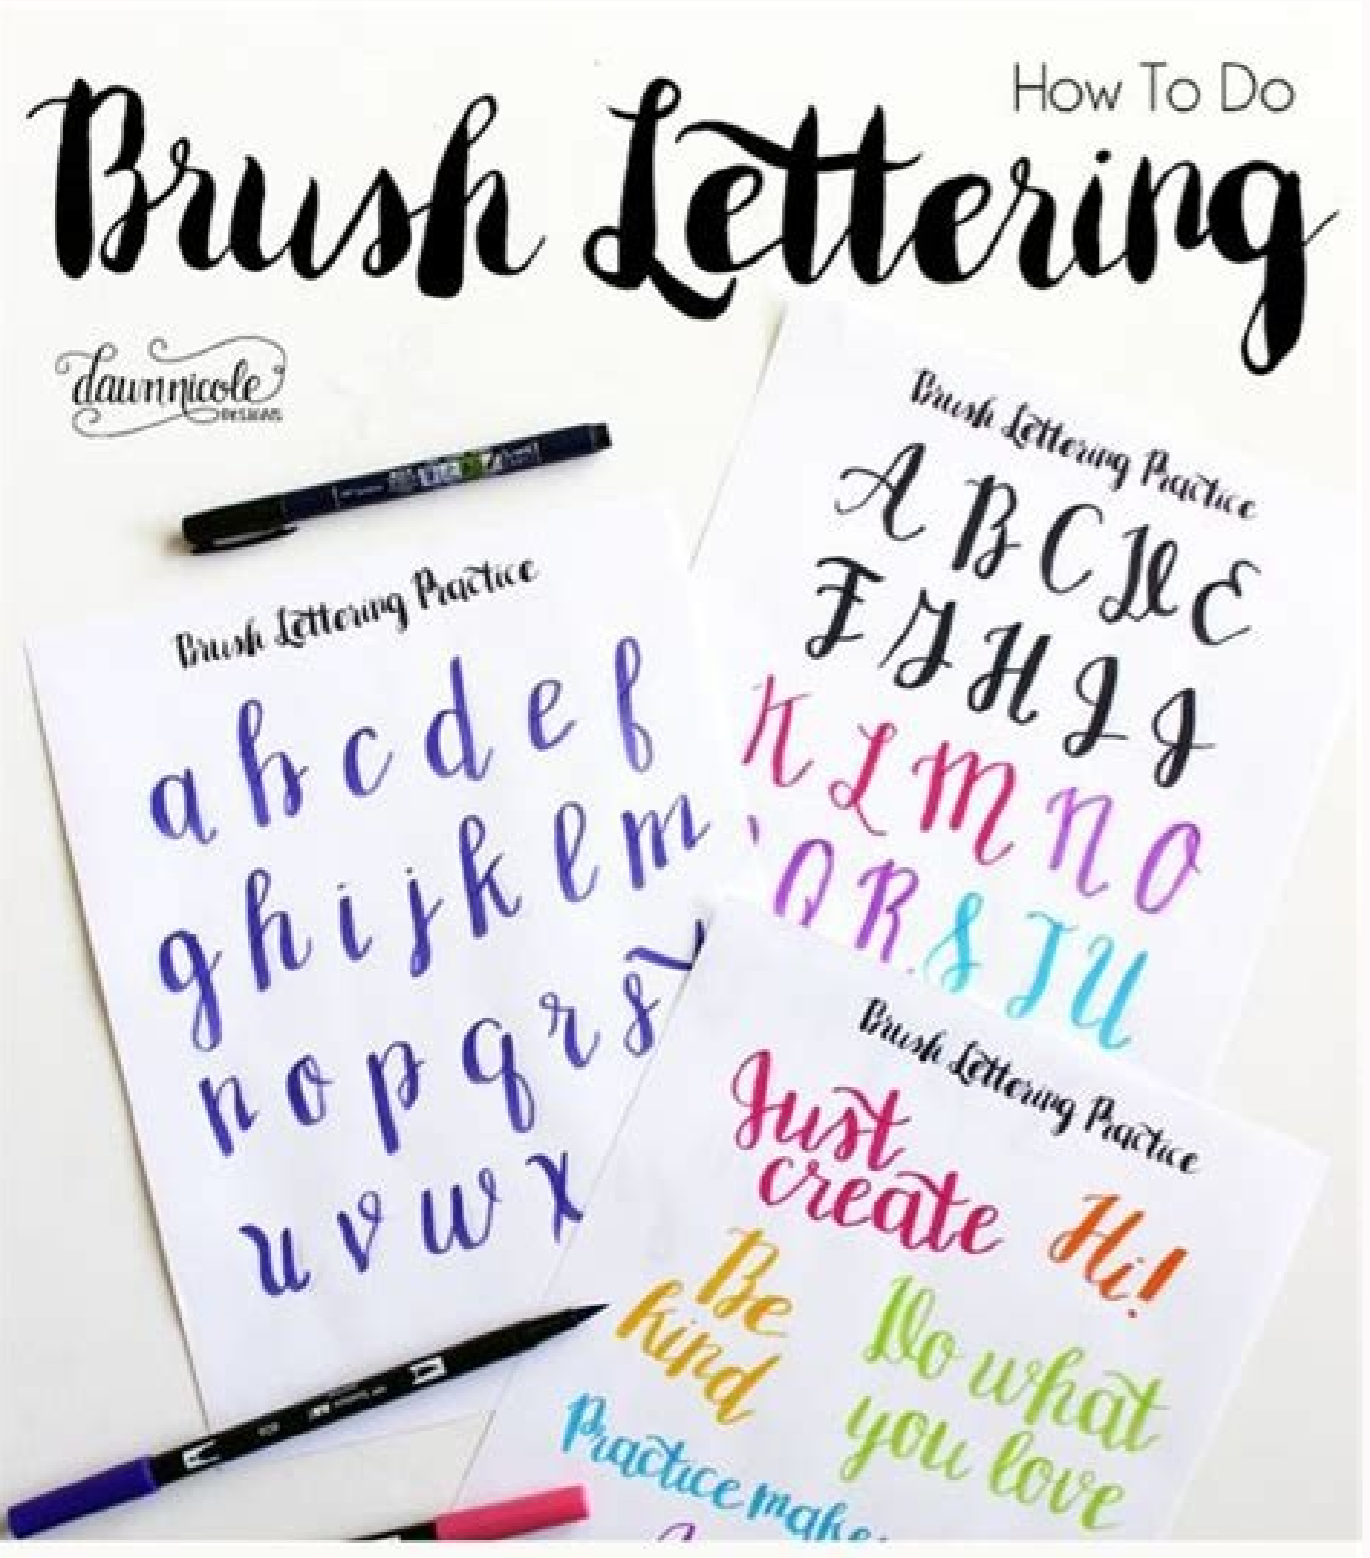 How To Do
Brush Lettering
dawnnicole
DESIGNS
Brush Lettering Practice
a b c d e f
g h i j k l m
n o p q r s
u v w x
Brush Lettering Practice
A B C D E
F G H I J
K L M N O
Q R S T U
Brush Lettering Practice
Just
create
Hi!
Be
kind
Do what
you love
Practice make